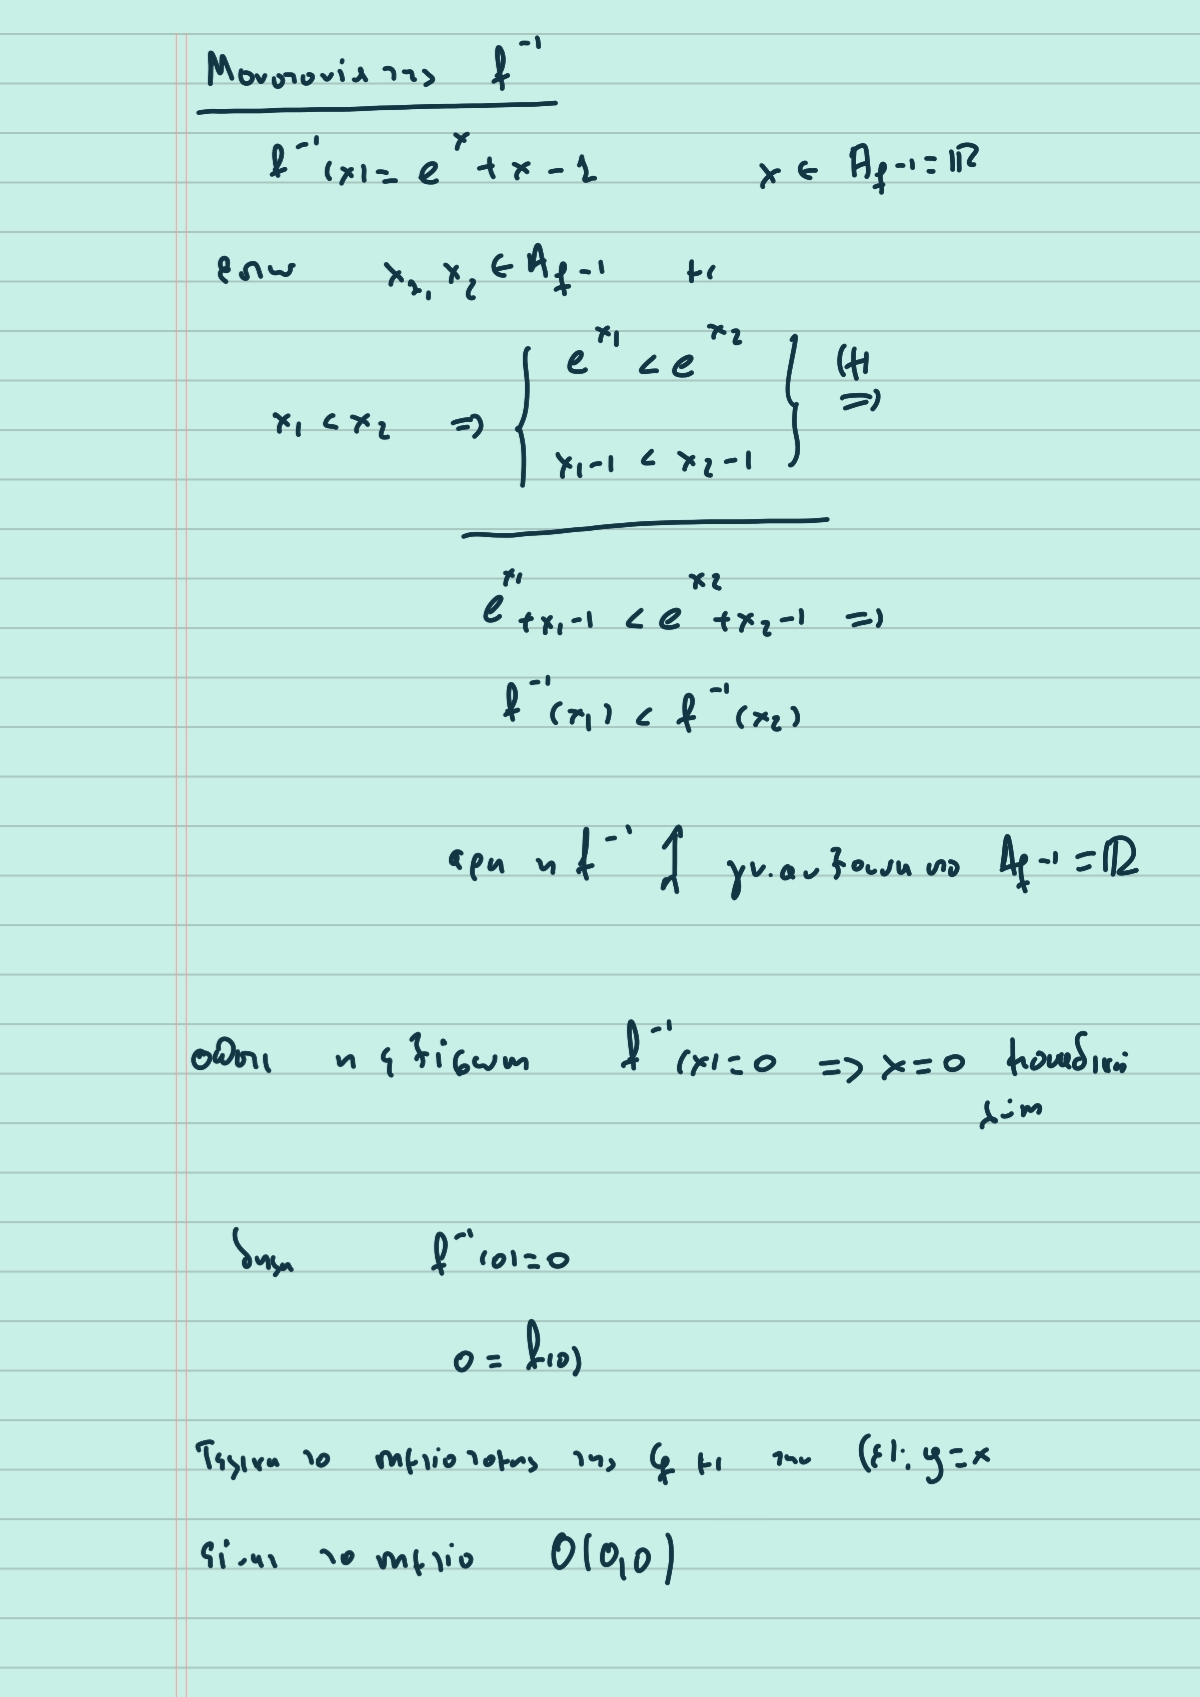 Μονοτονία της f⁻¹
f⁻¹(x) = eˣ + x - 1 x ∈ A_f⁻¹ = ℝ
εστω x₁, x₂ ∈ A_f⁻¹ με
e^x₁ < e^x₂ (+)
x₁ < x₂ ⇒ { } ⇒
x₁-1 < x₂-1
e^x₁ + x₁-1 < e^x₂ + x₂-1 ⇒
f⁻¹(x₁) < f⁻¹(x₂)
αρα η f⁻¹ ↑ γν. αυξουσα στο A_f⁻¹ = ℝ
οποτε η εξίσωση f⁻¹(x) = 0 ⇒ x = 0 μοναδική
λύση
δηλαδη f⁻¹(0) = 0
0 = f(0)
Τελικα το σημείο τομης της C_f με την (ε): y = x
είναι το σημείο O(0,0)